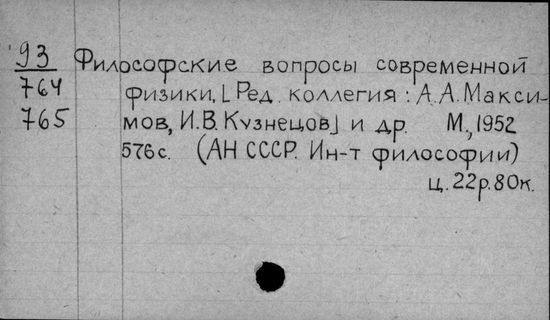 93
764
765
Философские вопросы современной
физики, [Ред. коллегия: А.А.Макси-
мов, И.В.Кузнецов] и др. М., 1952
576с. (АН СССР. Ин-т философии)
ц. 22р.80к.